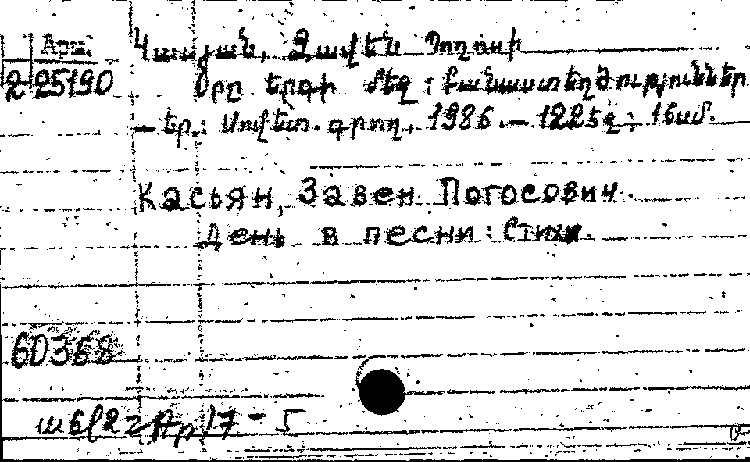 Арм.
2-25190
Կասյան, Զավեն Պողոսի
Օրը երգի մեջ : Բանաստեղծություններ
— Եր.: Սովետ. գրող, 1986. — 122էջ ; 16սմ.
Касьян, Завен Погосович.
День в песни : Стихи.
60368